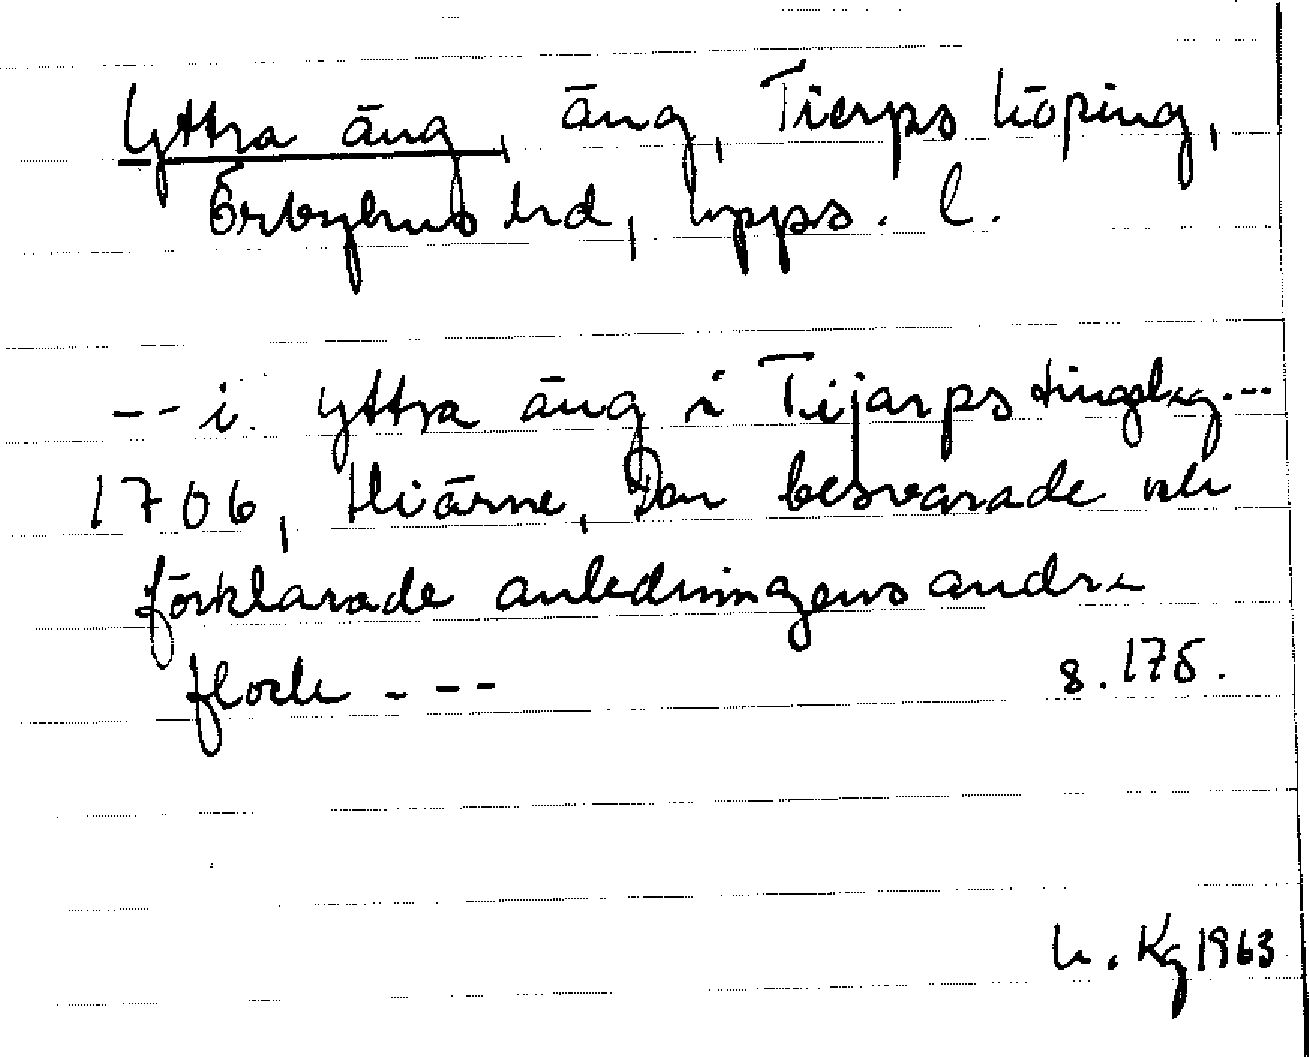 Yttra äng, äng, Tierps köping,
Örbyhus hd, Upps. l.
-- i yttra äng i Tijarps tingslag ---
1706, Hiärne, Den besvarade och
förklarade anledningens andra
flock - - - s. 175.
h. Kg 1963